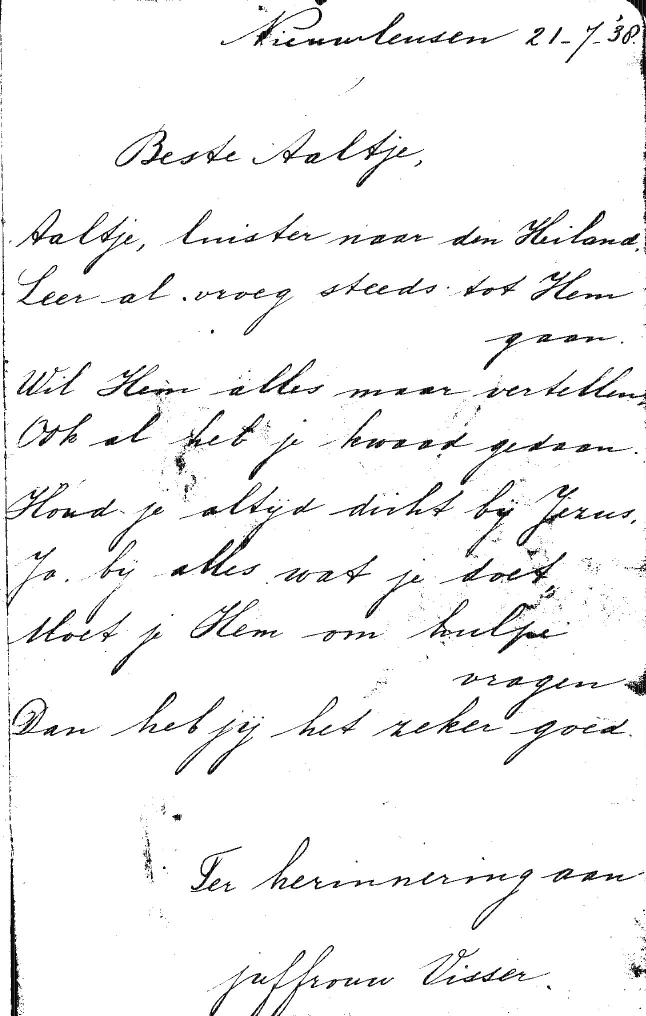 Nieuwleusen 21-7-'38.
Beste Aaltje,
Aaltje, luister naar den Heiland.
Leer al vroeg steeds tot Hem
gaan.
Wil Hem alles maar vertellen,
Ook al heb je kwaad gedaan.
Houd je altijd dicht bij Jezus,
Ja bij alles wat je doet,
Moet je Hem om hulpe
vragen
Dan heb jij het zeker goed.
Ter herinnering aan
juffrouw Visser.